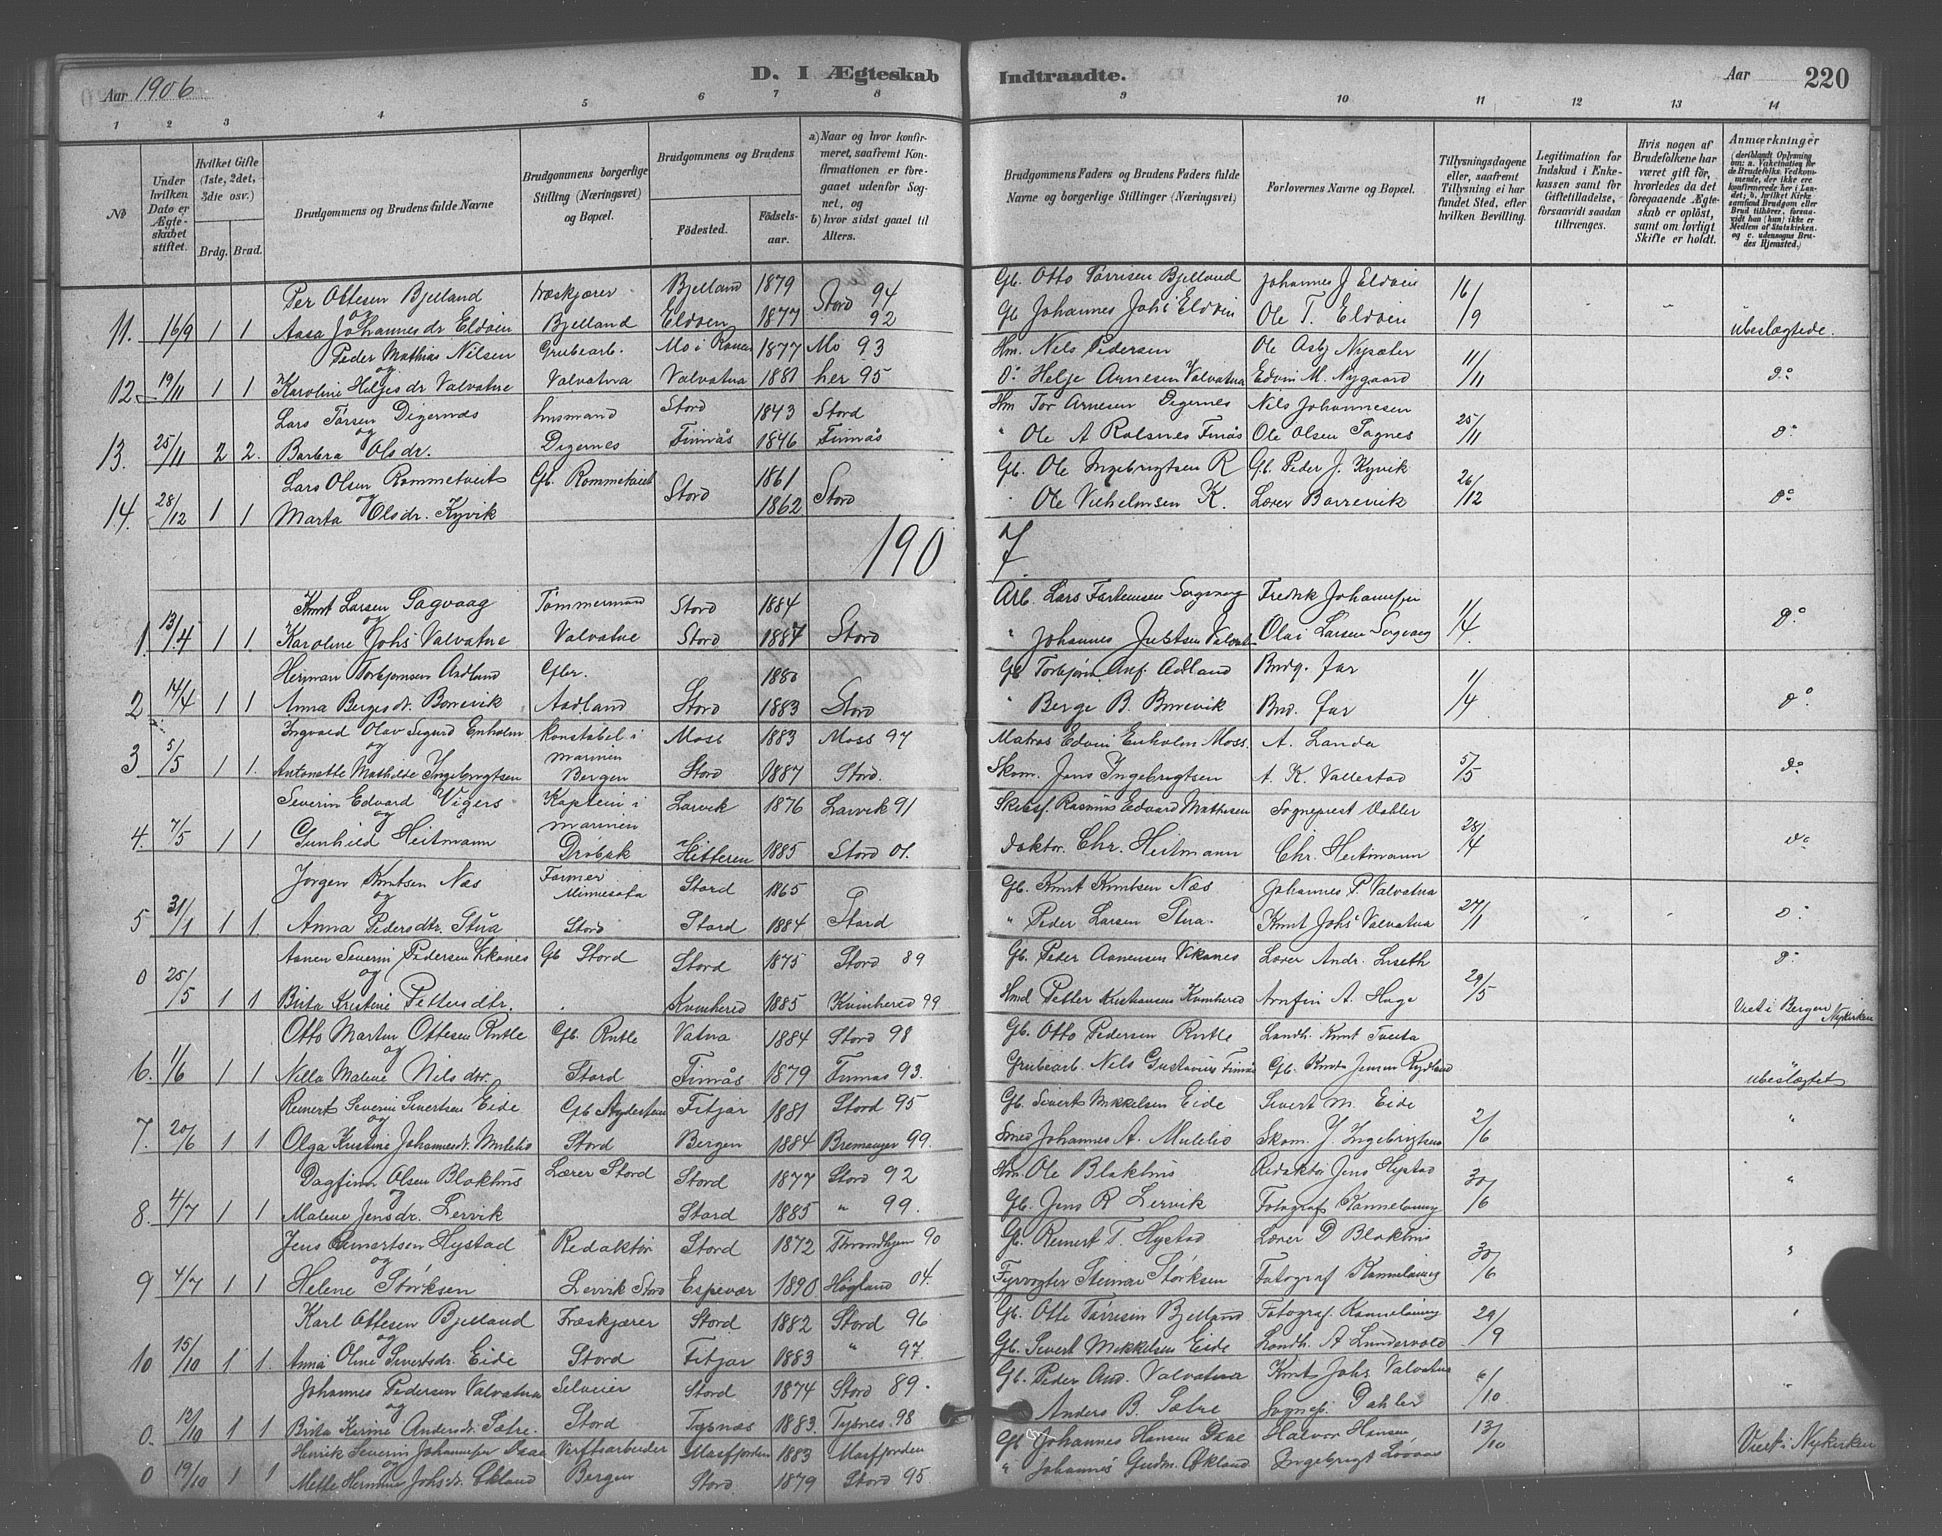 Aar 1906 D. I Ægteskab Indtraadte. Aar 220
1 2 3 4 5 6 7 8 9 10 11 12 13 14
No
Under hvilken Dato er Ægteskabet stiftet.
Hvilket Gifte (1ste, 2det, 3dte osv.) Brdg. Brud.
Brudgommens og Brudens fulde Navne
Brudgommens borgerlige Stilling (Næringsvei) og Bopæl.
Brudgommens og Brudens Fødested. Fødselsaar.
a) Naar og hvor konfirmeret, saafremt Konfirmationen er foregaaet udenfor Sognet, og b) hvor sidst gaaet til Alters.
Brudgommens Faders og Brudens Faders fulde Navne og borgerlige Stillinger (Næringsvei)
Forlovernes Navne og Bopæl.
Tillysningsdagene eller, saafremt Tillysning ei har fundet Sted, efter hvilken Bevilling.
Legitimation for Indskud i Enkekassen samt for Giftetilladelse, forsaavidt saadan tiltrænges.
Hvis nogen af Brudefolkene har været gift før, hvorledes da det foregaaende Ægteskab er opløst, samt om lovligt Skifte er holdt.
Anmærkninger (deriblandt Oplysning om: a. Vakcination for de Brudefolks Vedkommende, der ikke ere konfirmerede her i Landet; b. hvilket Kirkesamfund Brudgom eller Brud tilhører, forsaavidt han (hun) ikke er Medlem af Statskirken, og c. udensogns Brudes Hjemsted.)
Per Ottesen Bjelland træskjærer Bjelland 1879 Stord 94 Gb. Otto Tørrisen Bjelland Johannes J Eldøen 16/9
11. 16/9 1 1 og Aasa Johannesdr Eldøen Bjelland Eldøen 1877 92 Gb Johannes Johs Eldøen Ole T. Eldøen ubeslægtede.
Peder Mathias Nilsen Grubearb. Mo i Ranen 1877 Mo 93 Hm. Nels Pedersen Ole Asbj Nysæter 11/11
12 19/11 1 1 og Karoline Helgesdr Valvatne Valvatna Valvatna 1881 her 95 Do Helje Arnesen Valvatna Edvin M. Nygaard Do
Lars Tørsen Digernæs husmand Stord 1843 Stord Hm Tor Arnesen Digernes Nils Johannesen 25/11
13. 25/11 2 2. og Barbra Olsdr. Digernes Finnås 1846 Finnås " Ole A Rolsnes Finås Ole Olsen Sagnes Do
Lars Olsen Rommetveit Gb. Rommetveit Stord 1861 Stord Gb. Ole Ingebrigtsen R Gb. Peder J. Kyvik 26/12
14. 28/12 1 1 og Marta Olsdr. Kyvik 1862 " Ole Vilhelmsen K. Lærer Borrevik Do
190 7
Knut Larsen Sagvaag Tømmermand Stord 1884 Stord Arb. Lars Sagvaag Fredrik 1/4
1. 13/4 1 1. og Karoline Johs Valvatne Valvatne Stord 1887 " Johannes Justsen Valvatn Olai Larsen Sagvaag Do
Herman Torbjørnsen Aadland 1880 Gb Torbjørn Anf. Adland Brdg. far 1/4
2 14/4 1 1 Anna Bergesdr. Borrevik Aadland Stord 1883 Stord " Berge B. Borrevik Brud. far Do
Ingvald Olav Sigurd Enholm konstabel i Moss 1883 Moss 97 Matros Edvin Enholm Moss. A. Landa 5/5
3 5/5 1 1. og Antonette Mathilde Ingebrigtsen marinen Bergen Stord 1887 Stord. Skom. Jens Ingebrigtsen A. K. Vallestad Do
Severin Edvard Vigers Kaptein i Larvik 1876 Larvik 91 Skibsf. Rasmus Edvard Mathisen Sogneprest Dahler 28/4
4. 7/5 1 1 og Gunhild Heitmann marinen Drøbak Hitteren 1885 Stord 01. Doktor Chr. Heitmann Chr. Heitmann Do
Jørgen Knutsen Næs Farmer Minnesota Stord 1865 Stord Gb. Knut Knutsen Næs Johannes P. Valvatna 27/1
5 31/1 1 1. og Anna Pedersdtr. Stua Stord Stord 1884 " Peder Larsen Stua. Knut Johs Valvatna Do
Aanen Severin Pedersen Vikanes Gb Stord Stord 1875 Stord 89 Gb. Peder Aanensen Vikanes Lærer Andr. Liseth 20/5 Do
0 25/5 1 1 og Birta Kristine Pettersdtr. Kvinherred 1885 Kvinhered 99 Hmd Petter Kristiansen Kvinhered Arnfin A. Huge Viet i Bergen Nykirken
Otto Martin Ottesen Rutle Gb. Rutle Vatna 1884 Stord 98 Gb. Otto Pedersen Rutle Landh. Knut Tveita
6. 1/6 1 1 og Nilla Malene Nilsdtr. Stord Finnås 1879 Finnas 93. Grubearb. Nels Gustavus Finnås Gb. Knut Jensen Rydland ubeslægtet
Reinert Severin Sivertsen Eide Gb Stord Fitjar 1881 Stord 95 Gb. Sivert Mikkelsen Eide Sivert M. Eide 2/6 "
7. 20/6 1 1 og Olga Kristine Johannesdr. Mulelid Stord Bergen 1884 Bremanger 99. Smed Johannes A. Mulelid Skom. J. Ingebrigtsen
Dagfinn Olsen Blokhus Lærer Stord Stord 1877 Stord 92 Hm Ole Blokhus Redaktør Jens Hystad 30/6 "
8. 4/7 1 1 og Malene Jensdr. Lervik Stord 1885 " 99. Gb. Jens R Lervik Fotograf Kannelønning
Jens Reinertsen Hystad Redaktør Stord 1872 Throndhjem 90 Gb. Reinert T. Hystad Lærer D Blokhus 30/6 "
9 4/7 1 1 og Helene Størksen Lervik Stord Espevær 1890 Høgland 04. Fyrvogter Steinar Størksen Fotograf Kannelønning
Karl Ottesen Bjelland Træskjærer Stord 1882 Stord 96 Gb. Otto Tørrisen Bjelland Fotograf. Kannelønning 29/9 "
10 15/10 1 1. og Anna Oline Sivertsdr. Eide Stord Fitjar 1883 " 97 Gb. Sivert Mikkelsen Eide Landh. A Lundervold
Johannes Pedersen Valvatna Selveier Stord 1874 Stord 89. Gb. Peder And. Valvatna Knut Johs Valvatna 6/10 "
0. 12/10 1 1 og Brita Karine Andersdr. Sætre. Stord Tysnæs 1883. Tysnes. 98 Anders B. Sætre Dahler
Henrik Severin Daae Verftsarbeider Masfjorden 1883 Masfjorden Gb Johannes Hansen Daae Halvor Hansen 13/10 Viet i Nykirken
0 19/10 1 1 og Mette Hermine Johsdr. Økland Bergen Stord 1879 Stord 95 " Johannes Gudm. Økland Ingebrigt Lovaas